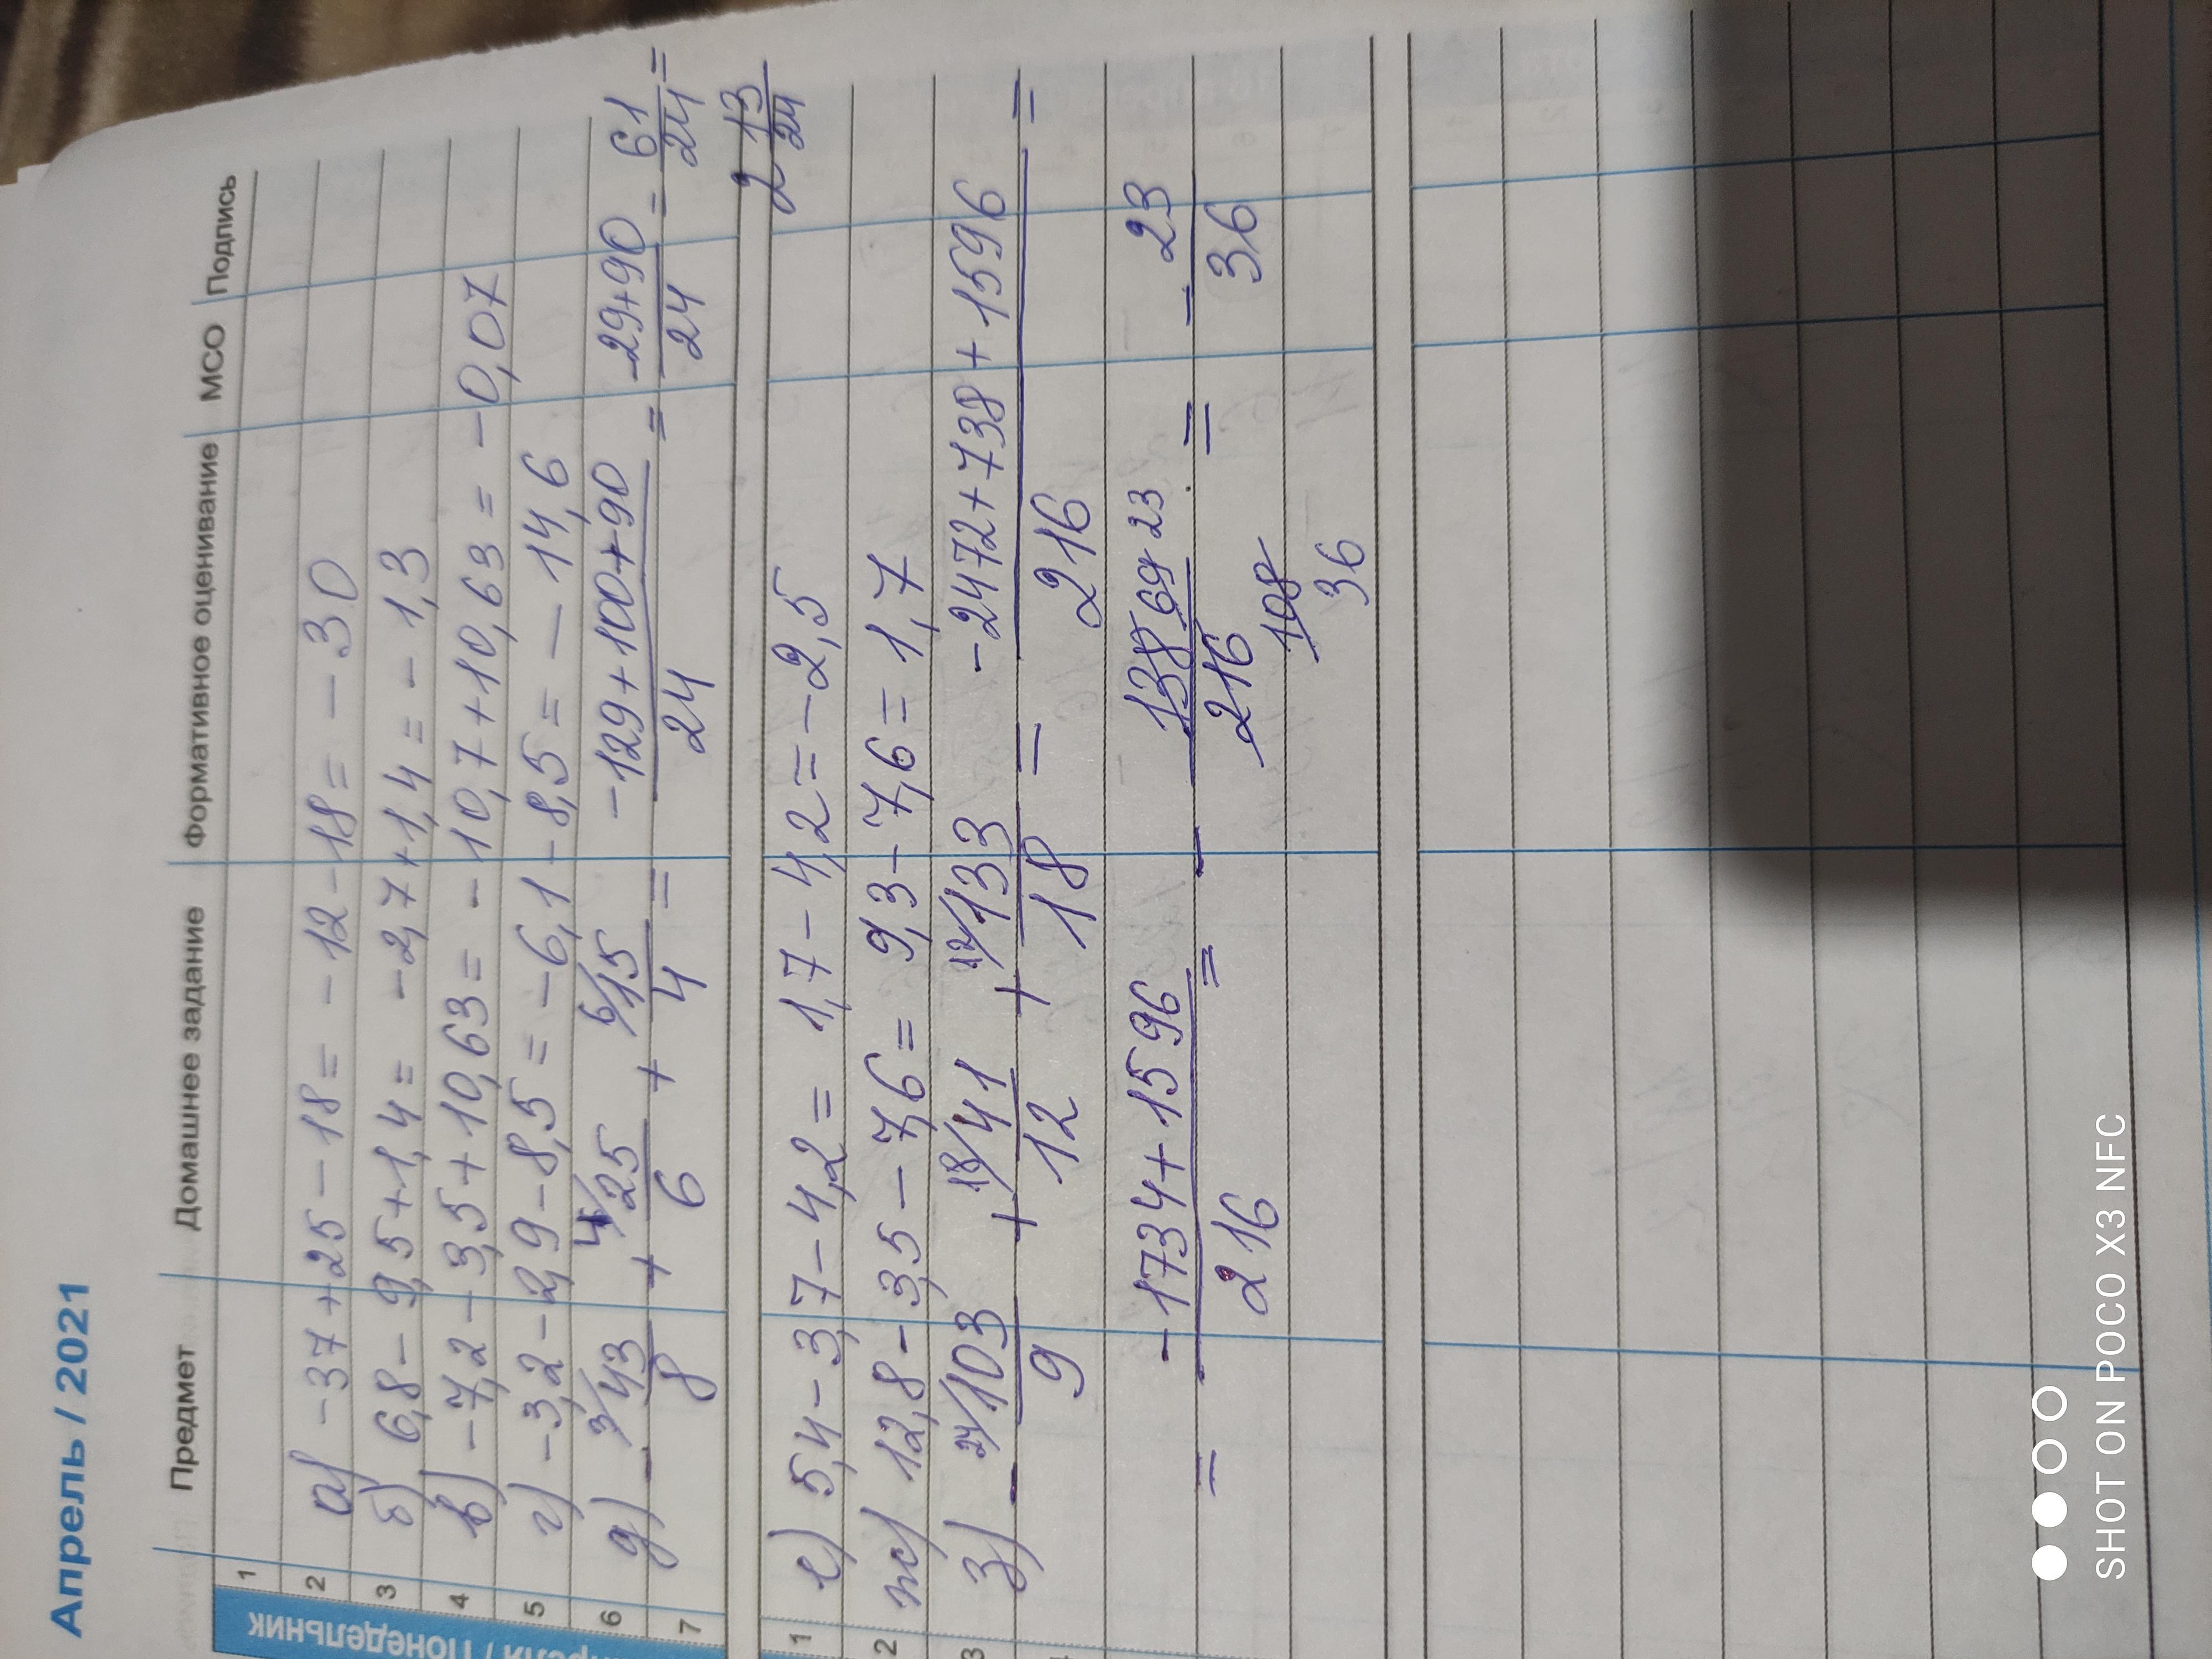 Апрель / 2021
Предмет Домашнее задание Формативное оценивание МСО Подпись
Понедельник
1
2 а) -37+25-18= -12-18= -30
3 б) 6,8-9,5+1,4= -2,7+1,4= -1,3
4 в) -7,2-3,5+10,63= -10,7+10,63= -0,07
5 г) -3,2-2,9-8,5= -6,1-8,5= -14,6
6 д) - 3/ 43/8 + 4/ 25/6 + 6/ 15/4 = -129+100+90/24 = -29+90/24 = 61/24 =
7 2 13/24
1 е) 5,4-3,7-4,2= 1,7-4,2= -2,5
2 ж) 12,8-3,5-7,6= 9,3-7,6= 1,7
3 з) - 24/ 103/9 + 18/ 41/12 + 12/ 133/18 = -2472+738+1596/216 =
= -1734+1596/216 = - 138 69 23/216 108 36 = - 23/36
SHOT ON POCO X3 NFC